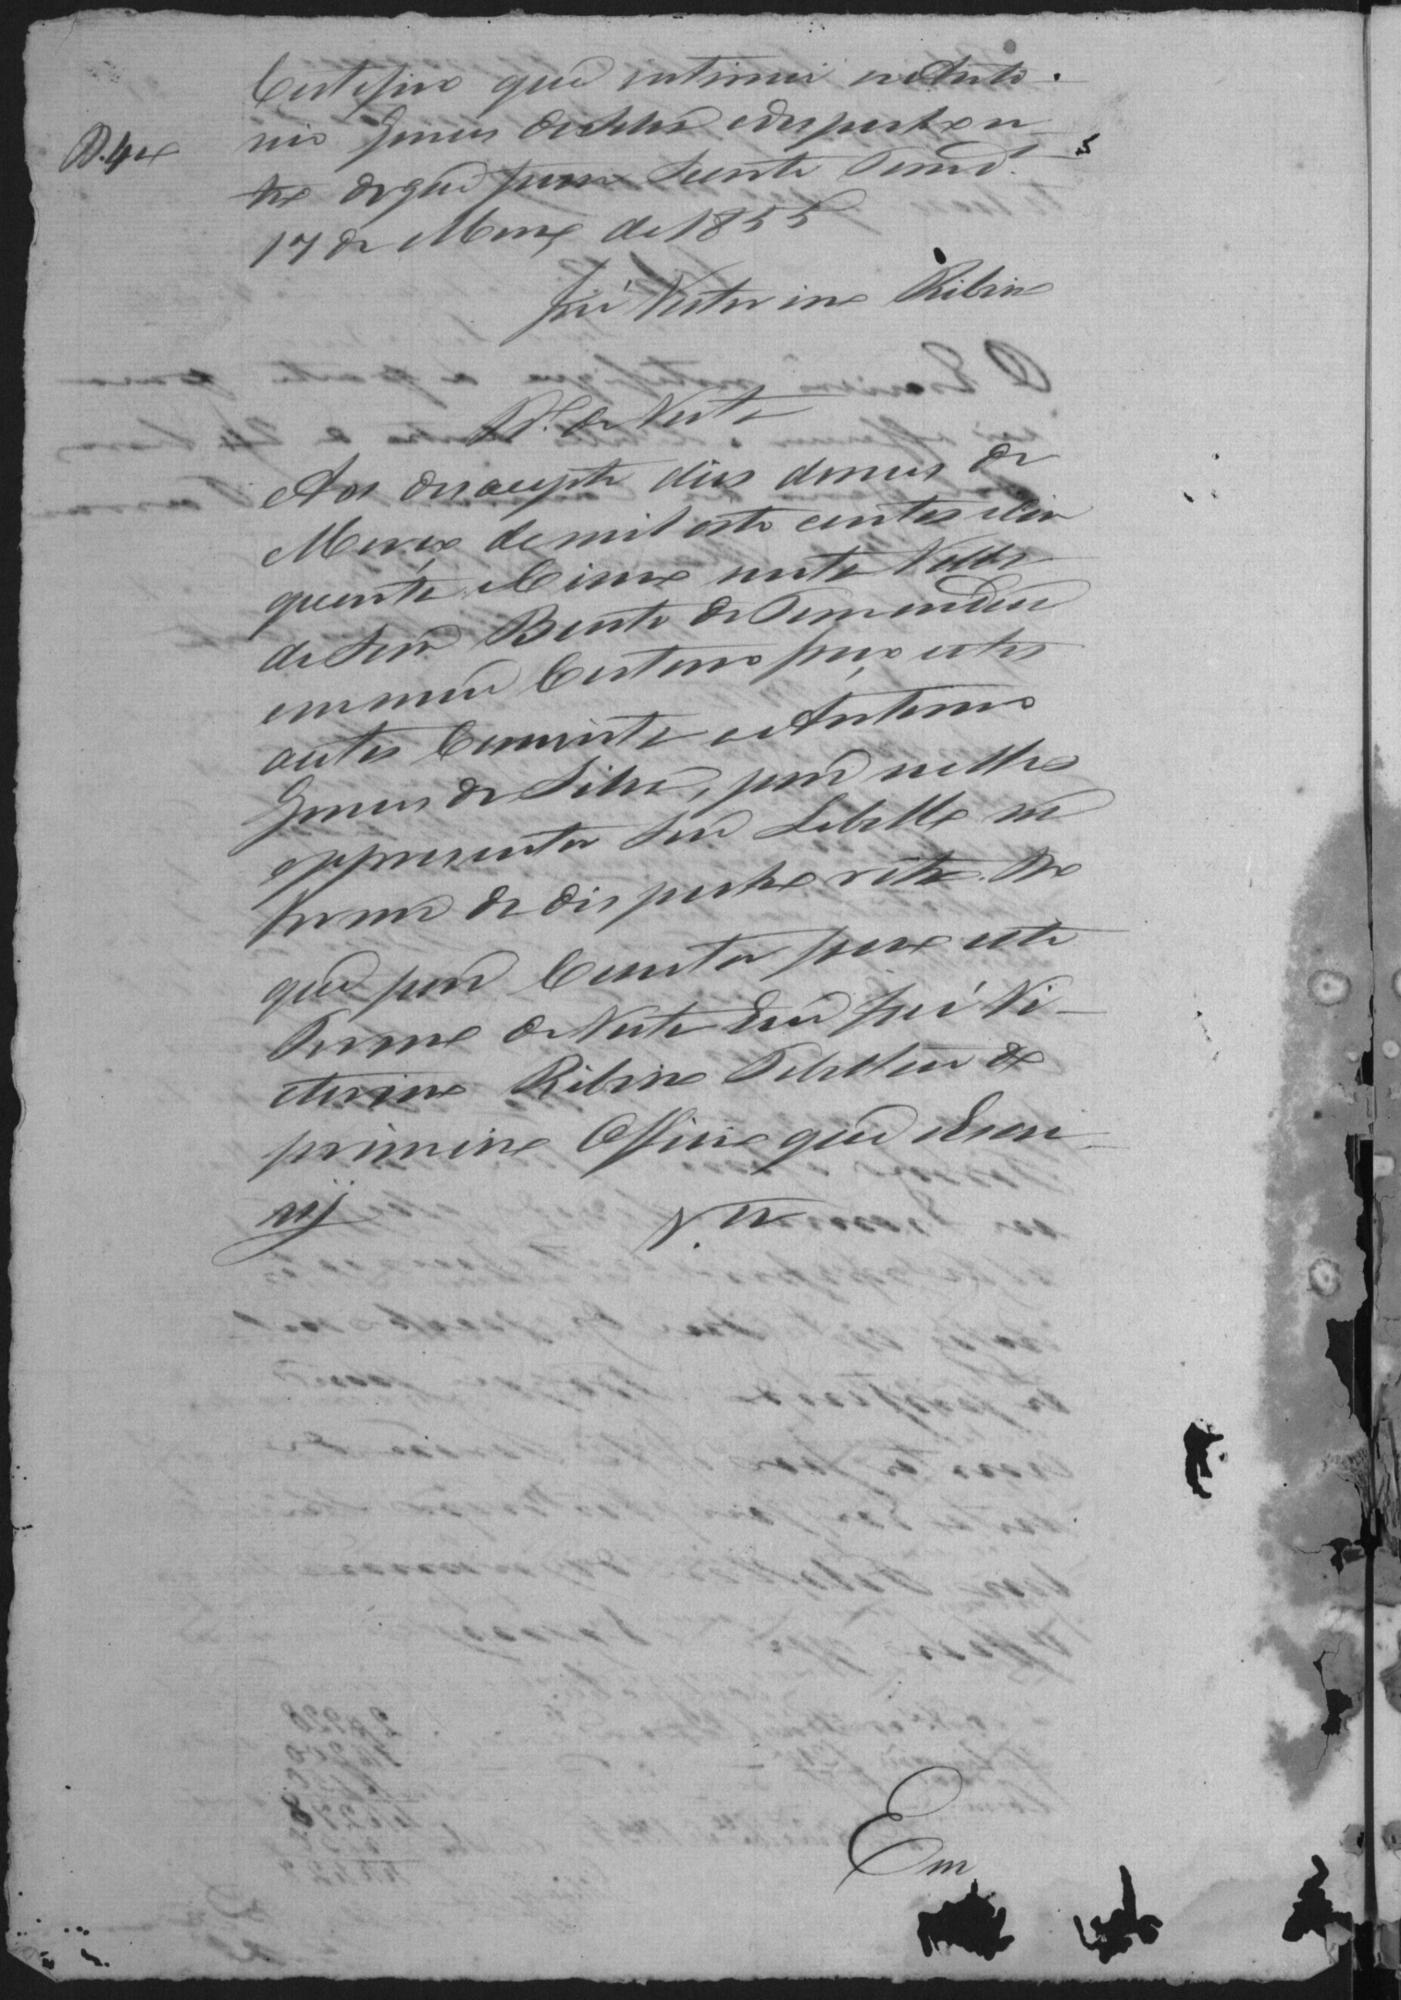 Certifico que intimei a Anto-
nio Gomes da Silva o despacho re-
tro do que para Sciente Tamd.
17 de Março de 1855
José Victorino Ribeiro
T.o de Vista
Aos desacepte dias do mes de
Março de mil oito centos e cin
quenta e Cinco nesta Villa
de São Bento de Tamanduá
em meu Cartorio faço estes
autos Com vista a Antonio
Gomes da Silva, para nelles
appresentar seu Libello na
forma do dispacho retro. Do
que para Constar faço este
Termo de Vista Eu José Vi-
ctorino Ribeiro Tabelliam do
primeiro Officio que escre
vij
V.ta
Em